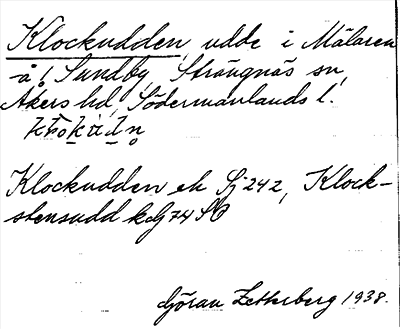 Klockudden, udde i Mälaren
å Sundby, Strängnäs sn,
Åkers hd, Södermanlands l.
Klockudden ek Sj 242, Klock-
stensudd kdg 74 SO
Göran Zetterberg 1938.